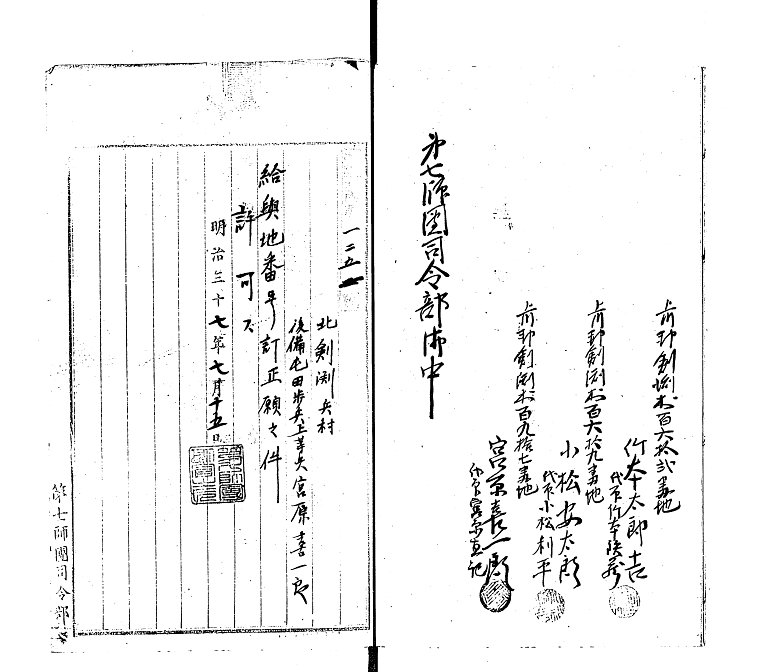 上川郡剣淵村百六拾弐番地
竹本太郎吉
代印竹本
上川郡剣淵村百六拾九番地
小松安太郎
代印小松利平
上川郡剣淵村百九拾七番地
宮原喜一郎
第七師団司令部御中
一二五
北剣渕兵村
後備屯田歩兵上等兵宮原喜一郎
給與地番号訂正願之件
許可ス
明治三十七年七月十五日
第七師團司令部